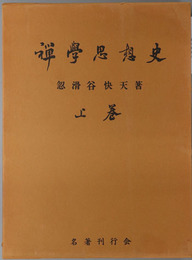 禪學思想史
忽滑谷快天著
上卷
名著刊行会